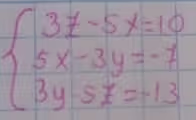 3z-5x=10
5x-3y=-7
3y 5z=-13